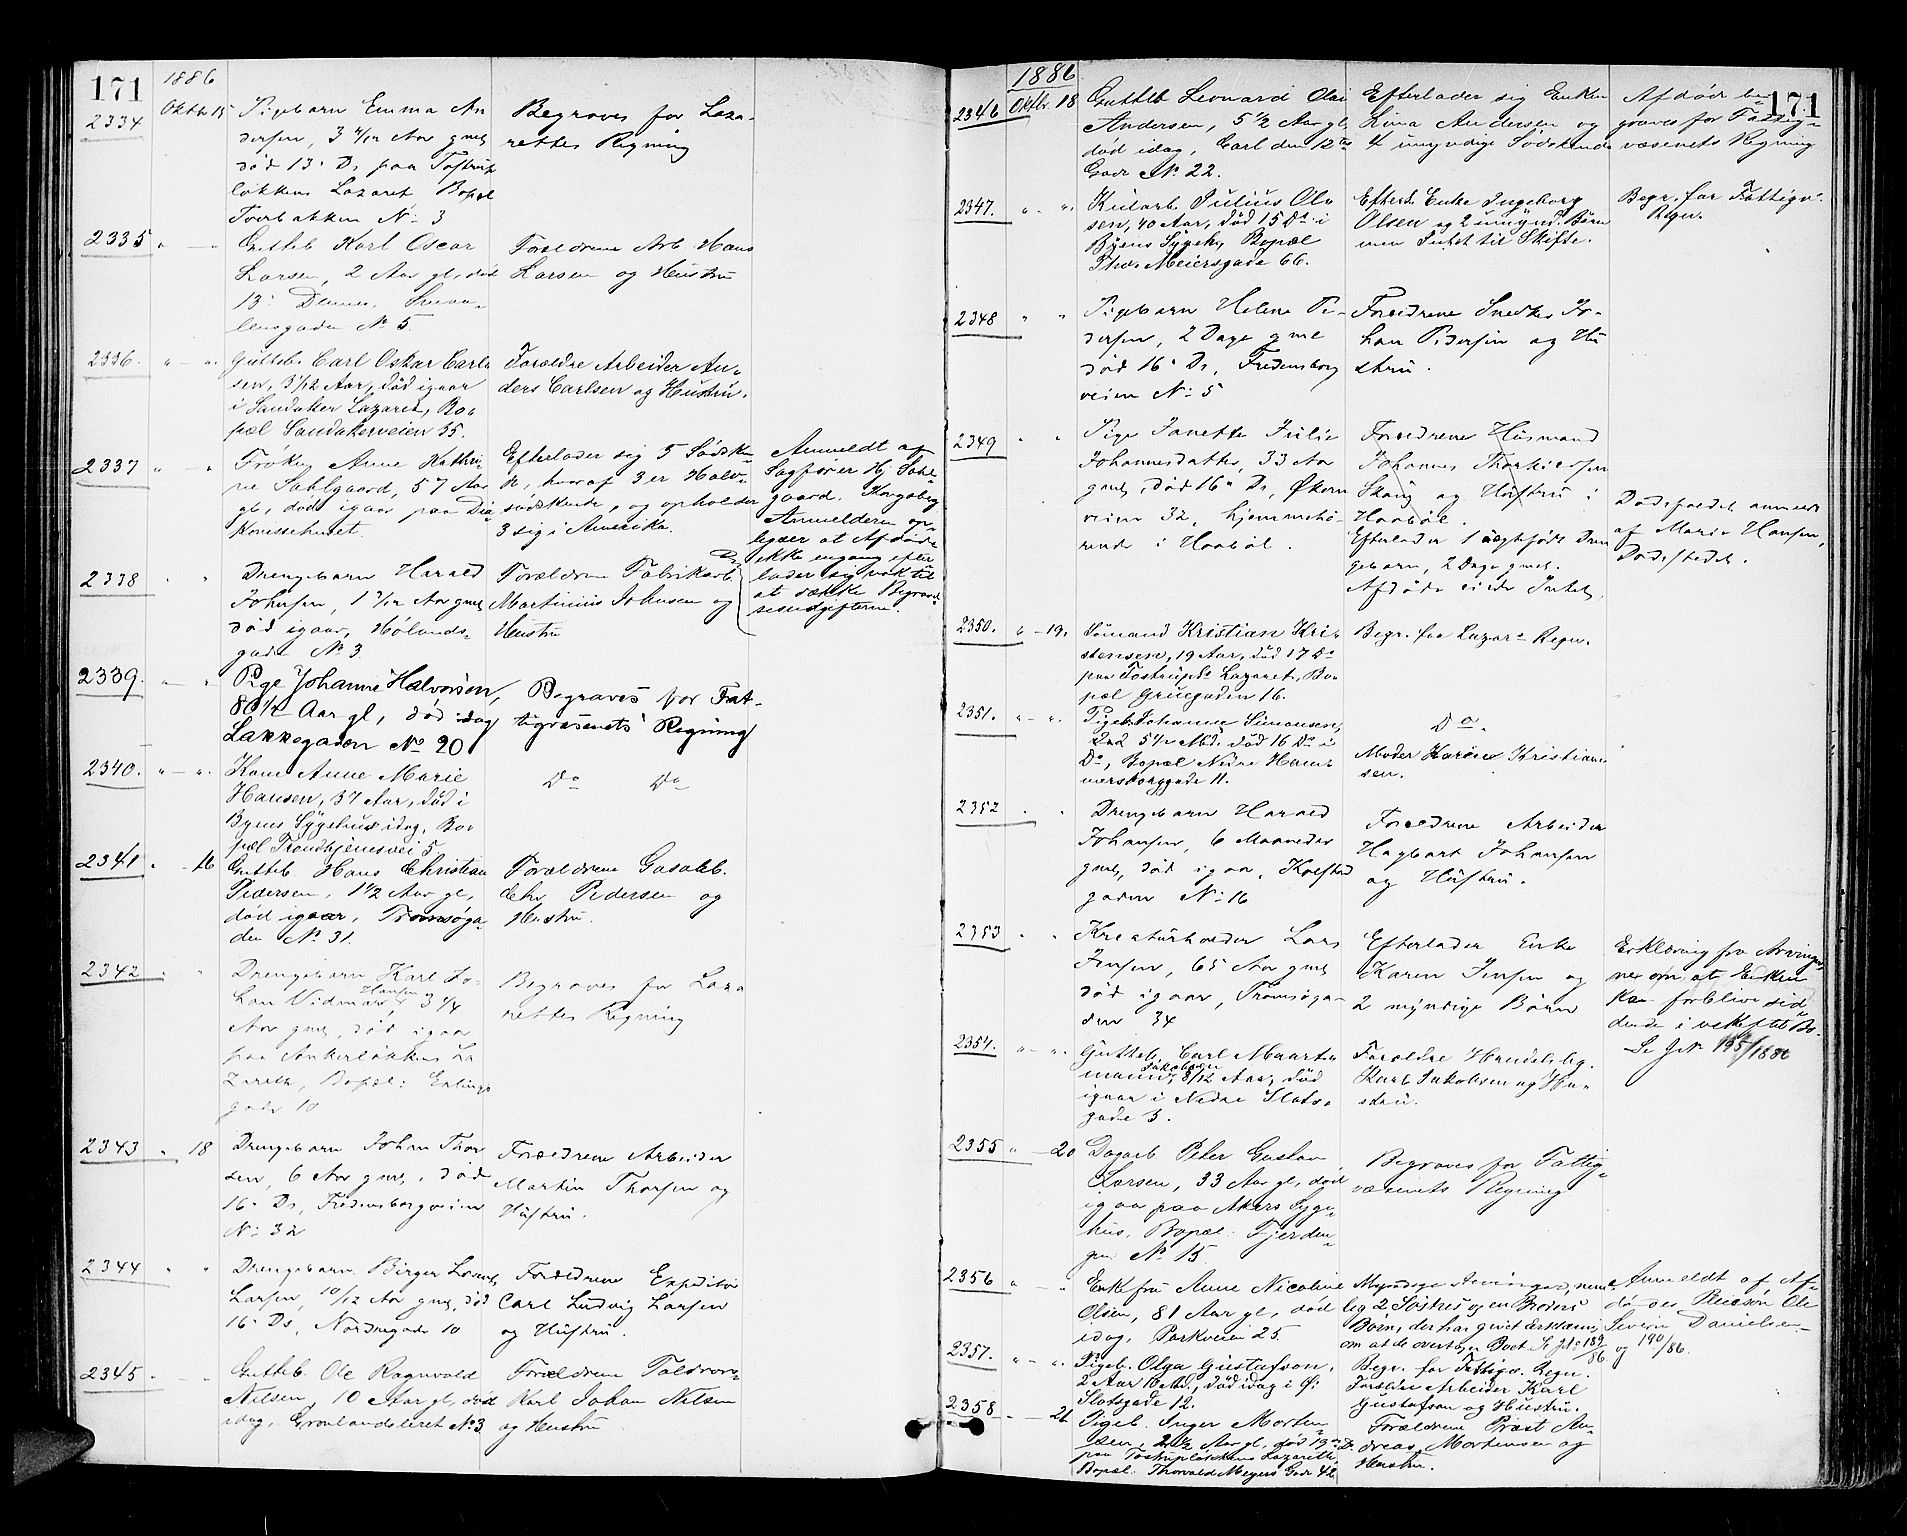 171
1886
2334
Oktbr 15
Pigebarn Emma An
dersen, 3 4/12 Aar gml
død 13. Ds. paa Toftrup
løkkens Lazaret Bopæl
Torbakken No 3
Begraves for Laza-
rettes Regning
2335 " — "
Gutteb Karl Oscar
Larsen, 2 Aar gl, død
13. Dennes,
lensgaden No 5.
Forældrene Arb. Hans
Larsen og Hustru
2336. " — ".
Gutteb. Carl Oskar Carl-
sen, Aar, død igaar
i Sandaker Lazaret, Bo-
pæl Sandakerveien 35.
Forældre Arbeider An-
ders Carlsen og Hustru.
2337 " — "
Frøken Anne Kathri-
ne Sahlgaard, 57 Aar
gl, død igaar paa Dia-
konissehuset.
Efterlader sig 5 Sødsken-
de, hvoraf 3 er Halv-
sødskende, og opholder
3 sig i Amerika.
Anmeldt af
Sagfører Hj Sahl-
gaard. Kongsberg
Anmelderen op-
lyser at Afdøde
ikke engang efter-
lader sig nok til
at dække Begravel-
sesudgifterne.
2338 " "
Drengebarn Harald
Johnsen, 1 Aar gml,
død igaar, Hølands-
gade No 3.
Forældrene Fabrikarb.
Martinius Johnsen og
Hustru
2339. — "
Pige Johanne Halvorsen,
80 1/2 Aar gl, død idag
Lakkegaden No 20
Begraves for Fat-
tigvæsenets Regning
2340. " — ".
Kone Anne Marie
Hansen, 37 Aar, død i
Byens Sygehus idag, Bo-
pæl Trondhjemsvei 5.
Do Do
2341 " - 16
Gutteb. Hans Christian
Pedersen, 1 1/2 Aar gl,
død igaar, Tromsøga-
den No 31.
Forældrene Gasarb.
Chr Pedersen og
Hustru.
2342 "
Drengebarn Karl Jo-
han Vidmar Hansen, 3 1/4
Aar gml, død igaar
paa Ankerløkkens La
zareth, Bopæl: Erlings
gade 10
Begraves for Laza
rettes Regning
2343 " 18
Drengebarn Johan Thor
sen, 6 Aar gml, død
16. Ds, Fredensborgveien
No 32
Forældrene Arbeider
Martin Thorsen og
Hustru.
2344 " "
Drengebarn Birger
Larsen, 10/12 Aar gml, død
16. Ds, Nordregade 10
Forældrene Expeditør
Carl Ludvig Larsen
og Hustru.
2345
Gutteb. Ole Ragnvald
Nilsen, 10 Aar gl, død
idag. Grønlandsleret No 3
Forældrene Toldvor-
Karl Johan Nilsen
og Hustru
171
1886
2346 Oktbr. 18
Gutteb Leonard Olai
Andersen, 5 1/2 Aar gl,
død idag, Carl den 12tes
Gade No 22.
Efterlader sig Enken
Lina Andersen og
4 umyndige Sødskende
Afdøde be-
graves for Fattig-
væsenets Regning
2347. " ".
Julius Ol-
sen, 40 Aar, død 15 Ds i
Byens Sygeh, Bopæl
Ths. Meiersgade 66.
Efterl. Enke Ingeborg
Olsen og 2 umynd. Børn
men Intet til Skifte.
Begr. for Fattigv.
Regn.
2348 " "
Pigebarn Helene Pe-
dersen, 2 Dage gml
død 16. Ds, Fredensborg
veien No 5
Forældrene Snedker Jo-
han Pedersen og Hu
stru.
2349 " "
Pige Janette Julie
Johannesdatter, 33 Aar
gml, død 16. Ds, Økern
veien 32, hjemmehø-
rende i Haabøl.
Forældrene Husmand
Johannes
Skaug og Hustru i
Haabøl.
Efterlader 1 uægtefødt Dren
gebarn, 2 Dage gml.
Afdøde eiede Intet.
Dødsfaldet anmeldt
af Marie Hansen,
Dødsstedet.
2350. " - 19.
Sømand Kristian Kri-
stensen, 19 Aar, død 17 Ds
paa Tostrups Lazaret, Bo-
pæl Gruegaden 16.
Begr. for Lazar. Regn.
2351. " - ".
Pigeb. Johanne Simonsen,
død 16 Ds i
Do, Bopæl Nedre Ham-
mersborggade 11.
Do.
Moder Karoline Kristian
sen.
2352
Drengebarn Harald
Johansen, 6 Maaneder
gml, død igaar, Kolstad
gaden No 16
Forældrene Arbeider
Hagbart Johansen
og Hustru.
2353 " "
Kreaturhandler Lars
Jensen, 65 Aar gml
død igaar, Tromsøga-
den 34
Efterlader Enke
Karen Jensen og
2 myndige Børn
Erklæring fra Arvinger-
ne om at Enken
kan forblive sid-
dende i uskiftet Bo.
Se J.No 185/1886
2354. " - ".
Gutteb. Carl Maarte
mann Jakobsen, 8/12 Aar, død
igaar i Nedre Slots-
gade 3.
Forældre Handelsbg.
Karl Jakobsen og Hu-
stru.
2355 " — 20
Dagarb Peter Gustav
Larsen, 33 Aar gl, død
igaar paa Akers Syge-
hus. Bopæl: Fjerdin-
gen No 15
Begraves for Fattig-
væsenets Regning
2356 " — "
Enkefru Anne Nicoline
Olsen, 81 Aar gl, død
idag, Parkveien 25.
Myndige Arvinger, nem-
lig 2 Søstres og en Broders
Børn, der har givet Erklæring
om at de overtage Boet. Se J.No 189/86 og 190/86.
Anmeldt af Af-
dødes Ole
Severin Danielsen.
2357. " — ".
Pigeb. Olga Gustafson,
2 Aar 10 Md., død idag i Ø.
Slotsgade 12.
Begr. for Fattigv. Regn.
Forældre Arbeider Karl
Gustafson og Hustru.
2358 — 21
Pigeb. Inger Morten-
sen, 2 1/2 Aar gl, død 19 Ds
paa Tostrupløkkens Lazareth,
Bopæl: Thorvald Meyers Gade 42
Forældrene Præst An-
dreas Mortensen og
Hustru.